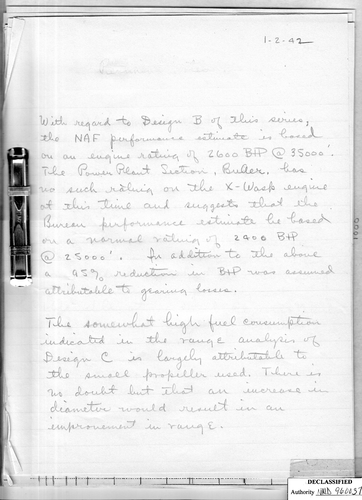 1-2-42
With regard to Design B of this series,
the NAF performance estimate is based
on an engine rating of 2600 BHP @ 35000'.
The Power Plant Section, BuAer. has
no such rating on the X-Wasp engine
at this time and suggests that the
Bureau performance estimate be based
on a normal rating of 2400 BHP
@ 25000'. In addition to the above
a 95% reduction in BHP was assumed
attributable to gearing losses.
The somewhat high fuel consumption
indicated in the range analysis of
Design C is largely attributable to
the small propeller used. There is
no doubt but that an increase in
diameter would result in an
improvement in range.
DECLASSIFIED
Authority NND 960037